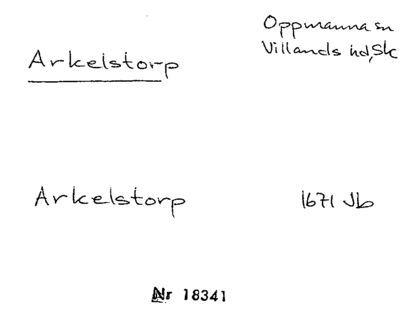 Arkelstorp
Oppmanna sn
Villands hd, Sk
Arkelstorp
1671 Jb
Nr 18341